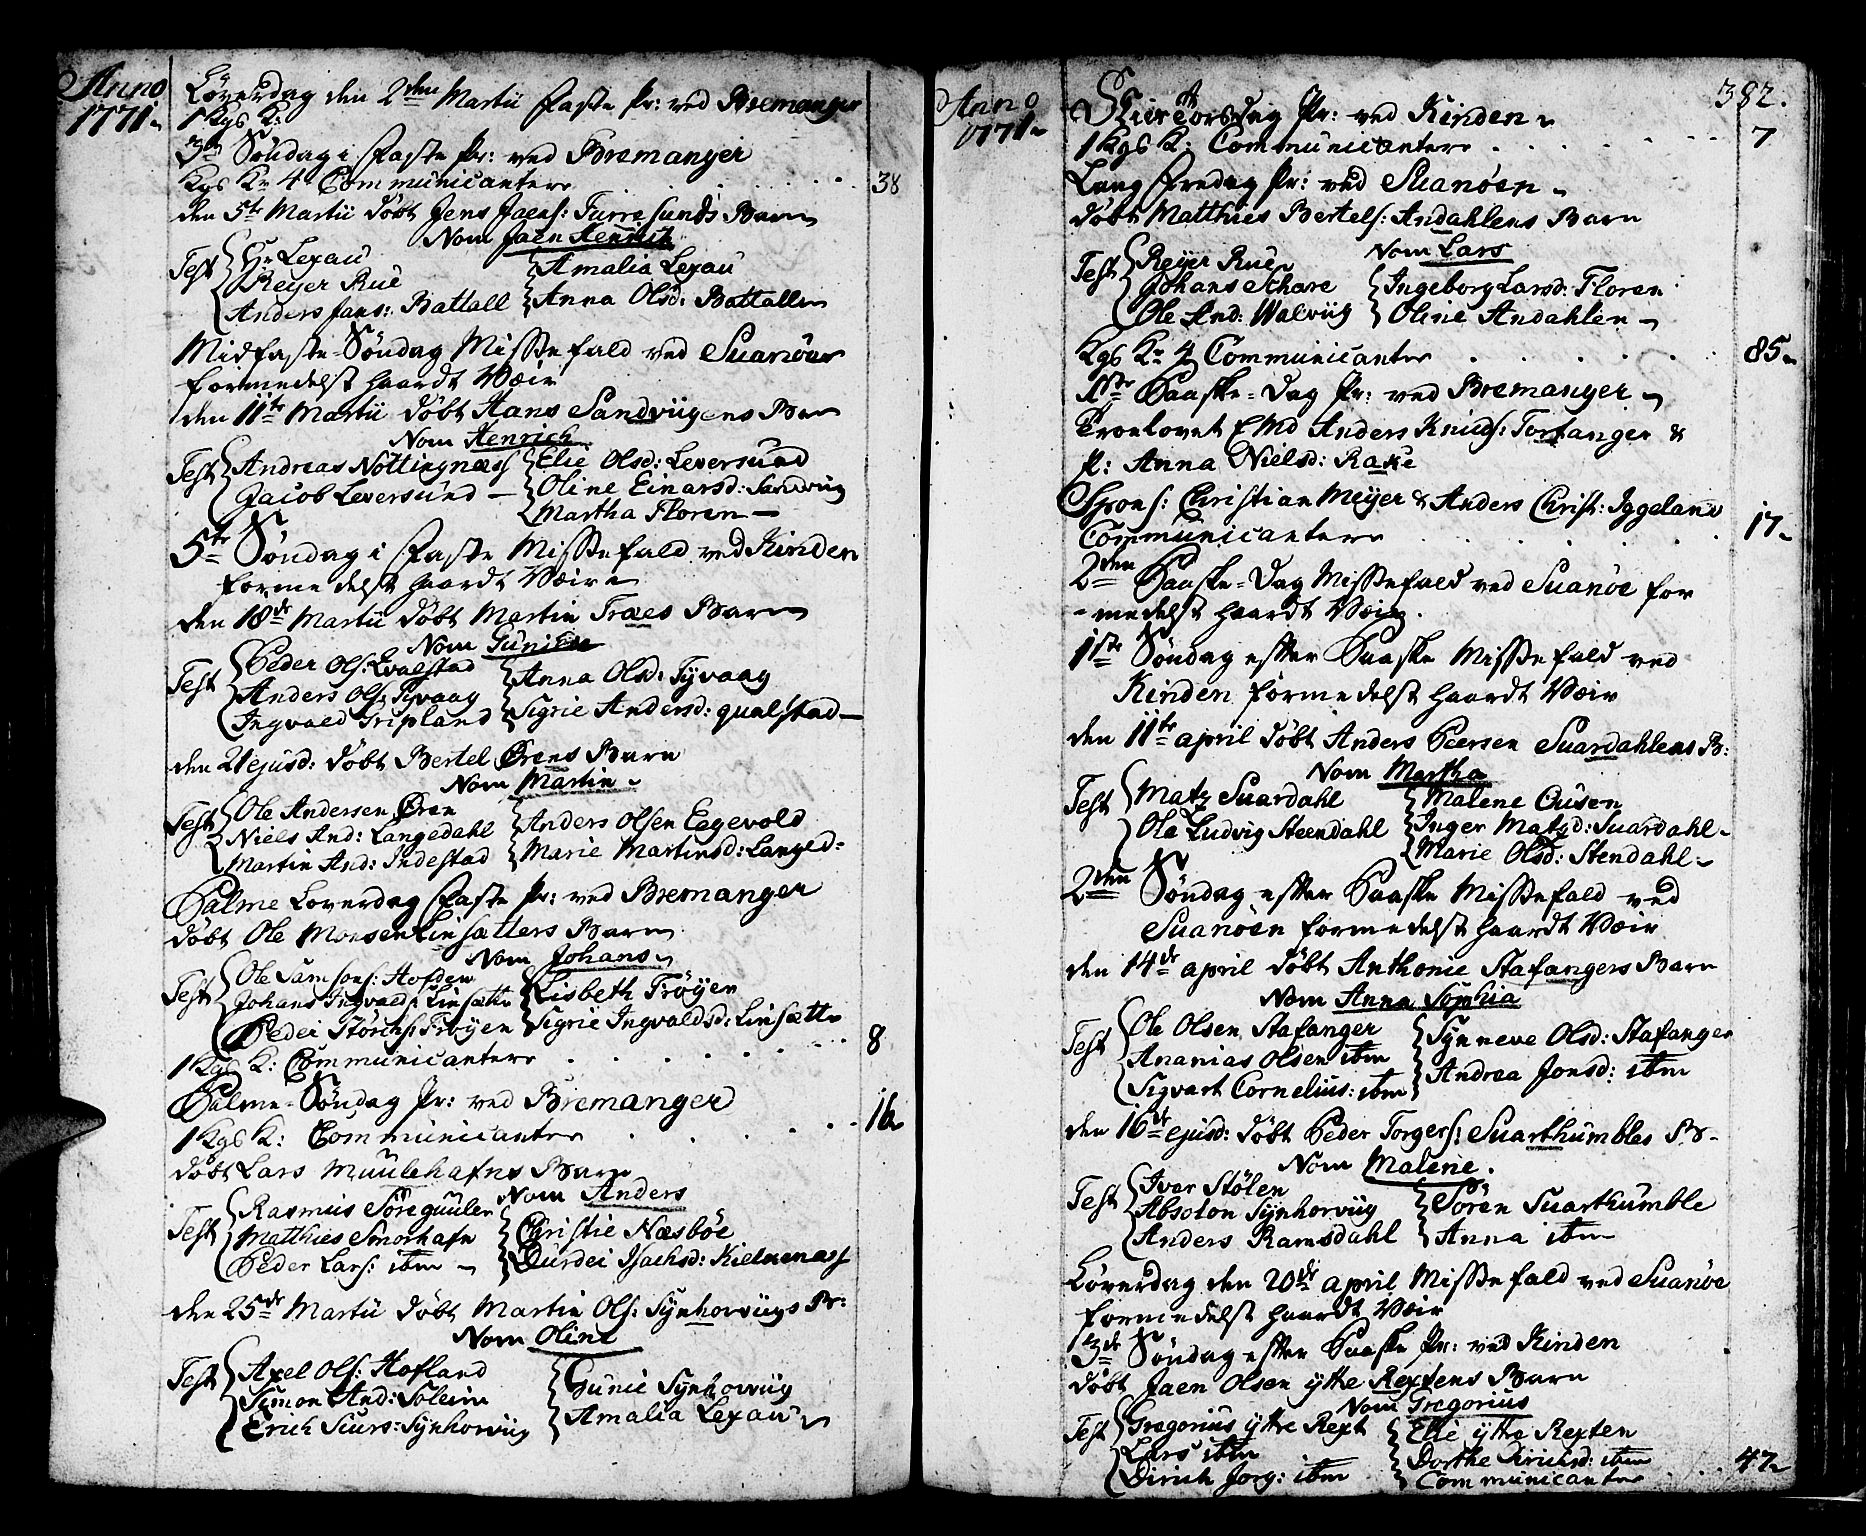 Anno
1771.
Löverdag den 2den Martii Faste Pr: ved Bremanger
1 Kgs K:
3de Söndag i Faste Pr: ved Bremanger
Kgs K: 4 Communicantere 38
den 5te Martii döbt Jens Jaens: Furresunds Barn
Nom Jaen Henrich
Test Hr Lexau
Reyer Rue
Anders Jans: Battall
Amalia Lexau
Anna Olsd: Battallen
Midfaste-Söndag Missefald ved Suanöen
formedelst haardt Væir
den 11te Martii döbt Hans Sandviigens Barn
Nom Henrich
Test Andreas Nottingnæss
Jacob Leversund
Elie Olsd: Leversund
Oline Einarsd: Sandviig
Martha Floren
5te Söndag i Faste Missefald ved Kinden
formedelst haardt Væir
den 18de Martii döbt Martin Traes Barn
Nom Gunild
Test Peder Ols: Qvalstad
Anders Ols: Tyvaag
Ingvald Gripland
Anna Olsd: Tyvaag
Sigrie Andersd: qualstad
den 21 ejusd: döbt Bertel Ørens Barn
Nom Martin
Test Ole Andersen Øren
Niels And: Langedahl
Martin And: Indestad
Anders Olsen Eegevold
Marie Martinsd: Langed:
Palme Löverdag Faste Pr: ved Bremanger
döbt Ole Monsen Linsætters Barn
Nom Johans
Test Ole Samsons: Hofden
Johans Ingvalds: Linsætte
Peder Störchs: Fröyen
Lisbeth Fröyen
Sigrie Ingvaldsd: Linsætte
1 Kgs K: Communicantere 8
Palme-Söndag Pr: ved Bremanger
1 Kgs K: Communicantere 16
döbt Lars Muulehafns Barn
Nom Anders
Test Rasmus Söreguulen
Matthies Smorhafn
Peder Lars: ibm
Christie Næsböe
Durdei Isachsd: Kielkenæss
den 25de Martii döbt Martin Ols: Synhorviigs B:
Nom Oline
Test Axel Ols: Hofland
Simon And: Soleim
Erich Siurs: Synhorviig
Gunie Synhorviig
Amalia Lexau
Anno
1771
382.
Skiertorsdag Pr: ved Kinden
1 Kgs K: Communicantere 7
Lang Fredag Pr: ved Suanöen
döbt Matthies Bertels: Andahlens Barn
Nom Lars
Test Reyer Rue
Johans Schare
Ole And: Walviig
Ingeborg Larsd: Floren
Oline Andahlen
Kgs K: 4 Communicanter 85
1ste Paaske-Dag Pr: ved Bremanger
Troelovet E Md Anders Knuds: Torfanger &
P: Anna Nielsd: Rake
Spons: Christian Meyer & Anders Christ: Iggeland
Communicantere 17
2den Paaske-Dag Missefald ved Suanöe for
-medelst haardt Væir.
1ste Söndag efter Paaske Missefald ved
Kinden formedelst haardt Væir
den 11te april döbt Anders Peersen Suardahlens B:
Nom Martha
Test Matz Suardahl
Ole Ludvig Steendahl
Malene Ousen
Inger Matzd: Suardahl
Marie Olsd: Stendahl
2den Söndag efter Paaske Missefald ved
Suanöen formedelst haardt Væir
den 14de april döbt Anthonie Stafangers Barn
Nom Anna Sophia
Test Ole Olsen Stafanger
Ananias Olsen ibm
Sigvart Cornelius: ibm
Synneve Olsd: Stafanger
Andrea Jonsd: ibm
den 16de ejusd: döbt Peder Torgers: Suarthumbles B-
Nom Malene.
Test Iver Stölen
Absolon Synhorviig
Anders Ramsdahl
Sören Suarthumble
Anna ibm
Löverdag den 20de april Missefald ved Suanöe
formedelst haardt Væir
3de Söndag efter Paaske Pr: ved Kinden
döbt Jaen Olsen ytte Rextens Barn
Nom Gregorius
Test Gregorius ytte Rext
Lars ibm
Dirich Jorg: ibm
Elie ytte Rexten
Dorthe Dirichsd: ibm
Communicantere 47